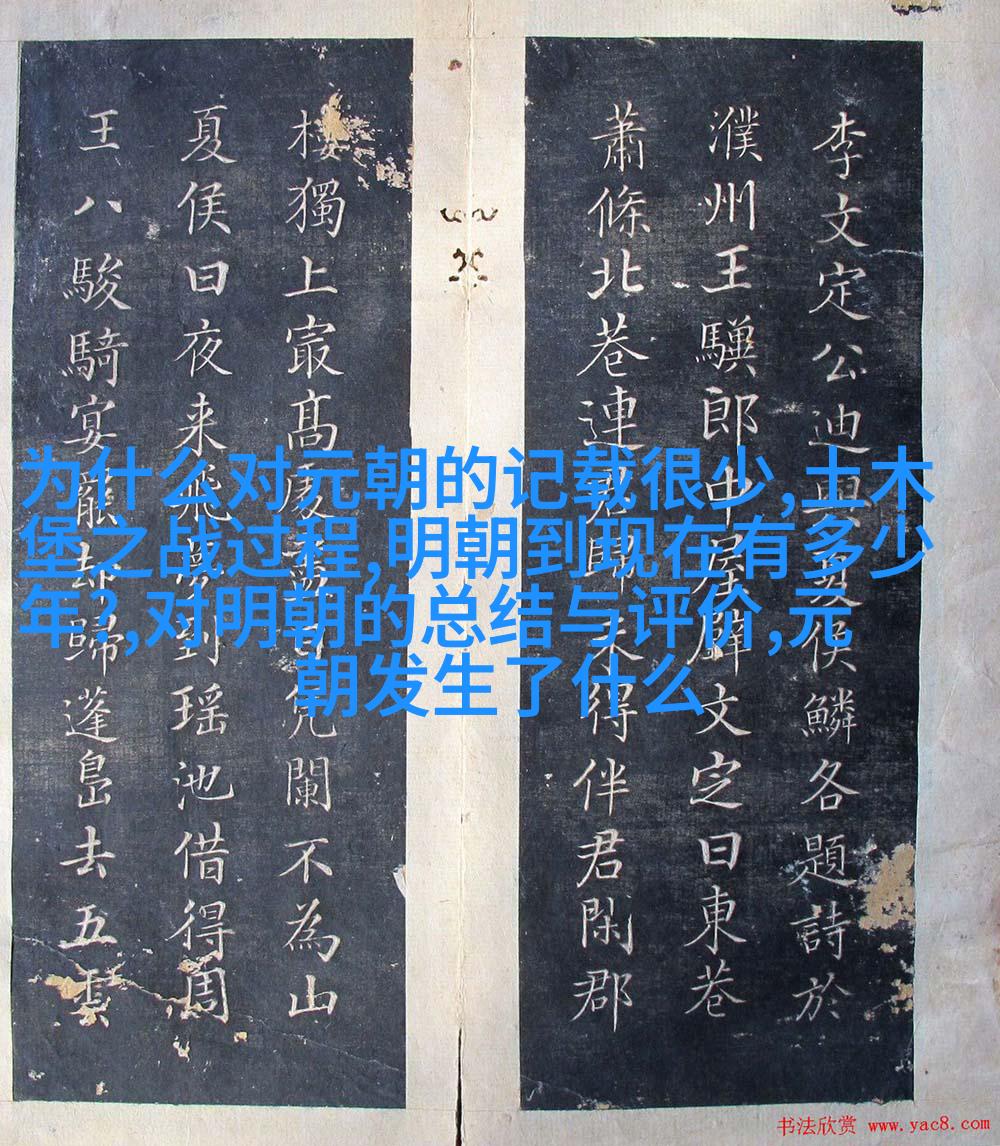 李文定公迪與夏侯鱗各題詩於
濮州王郎中屋文定曰東巷
蕭條北巷連未得伴君閑郡
樓獨上冣高處闌不為山
夏侯曰夜来飛夢到瑶池借得周
王八駿騎宴罷却歸蓬島去五雲
为什么对元朝的记载很少,土木
堡之战过程,明朝到现在有多少
年?,对明朝的总结与评价,元
朝发生了什么
书法欣赏 www.yac8.com